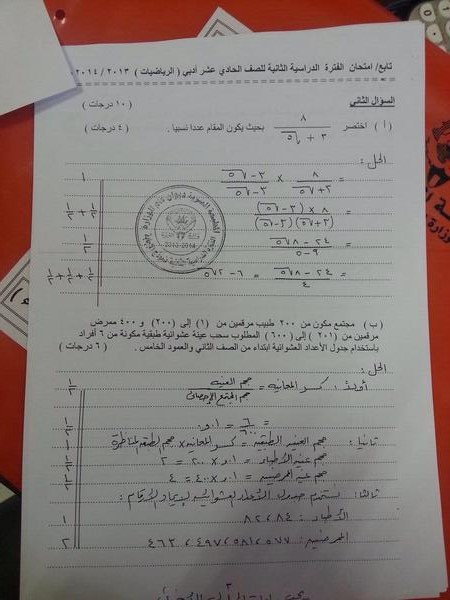 تابع/ امتحان الفترة الدراسية الثانية للصف الحادي عشر أدبي ( الرياضيات ) ٢٠١٣ / ٢٠١٤
السؤال الثاني ( ١٠ درجات )
( أ ) اختصر ٨ / (٣ + √٥) بحيث يكون المقام عددا نسبيا . ( ٤ درجات )
الحل :
= ٨ / (٣ + √٥) × (٣ - √٥) / (٣ - √٥) ١
= ٨ × (٣ - √٥) / (٣ + √٥)(٣ - √٥) ١/٢ + ١/٢
= (٢٤ - ٨√٥) / (٩ - ٥) ١/٢
= (٢٤ - ٨√٥) / ٤ = ٦ - ٢√٥ ١/٢ + ١/٢ + ١/٢
( ب ) مجتمع مكون من ٢٠٠ طبيب مرقمين من (١) إلى (٢٠٠) و ٤٠٠ ممرض
مرقمين من (٢٠١) إلى (٦٠٠) المطلوب سحب عينة عشوائية طبقية مكونة من ٦ أفراد
باستخدام جدول الأعداد العشوائية ابتداء من الصف الثاني والعمود الخامس . ( ٦ درجات )
الحل :
أولاً : كسر المعاينة = حجم العينة / حجم المجتمع الإحصائي ١/٢
= ٦ / ٦٠٠ = ٠,٠١
ثانياً : حجم العينة الطبقية = كسر المعاينة × حجم الطبقة المناظرة
حجم عينة الأطباء = ٠,٠١ × ٢٠٠ = ٢
حجم عينة الممرضين = ٠,٠١ × ٤٠٠ = ٤
ثالثاً : نستخدم جدول الأعداد العشوائية لإيجاد الأرقام :
الأطباء : ٨٤ ، ٨٢ ١
الممرضين : ٥٧٧ ، ٥٨١ ، ٤٩٧ ، ٤٦٣ ٢
٢